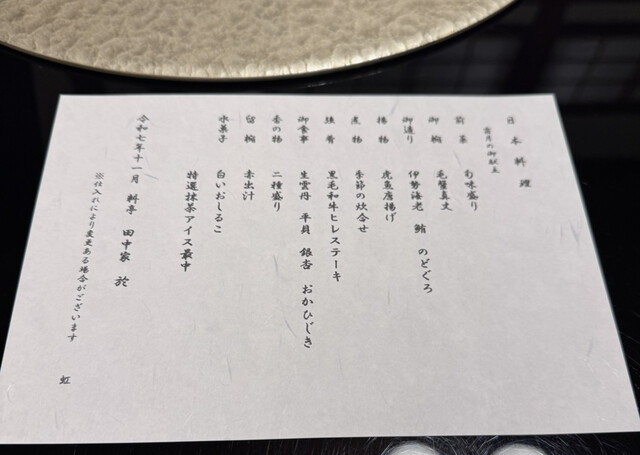 日本料理
霜月の御献立
前菜 旬味盛り
御椀 毛蟹真丈
御造り 伊勢海老 鮪 のどぐろ
揚物 虎魚唐揚げ
煮物 季節の炊合せ
強肴 黒毛和牛ヒレステーキ
御食事 生雲丹 平貝 銀杏 おかひじき
香の物 二種盛り
留椀 赤出汁
水菓子 白いおしるこ
特選抹茶アイス最中
令和七年十一月 料亭 田中家 於
※仕入れにより変更ある場合がございます
虹